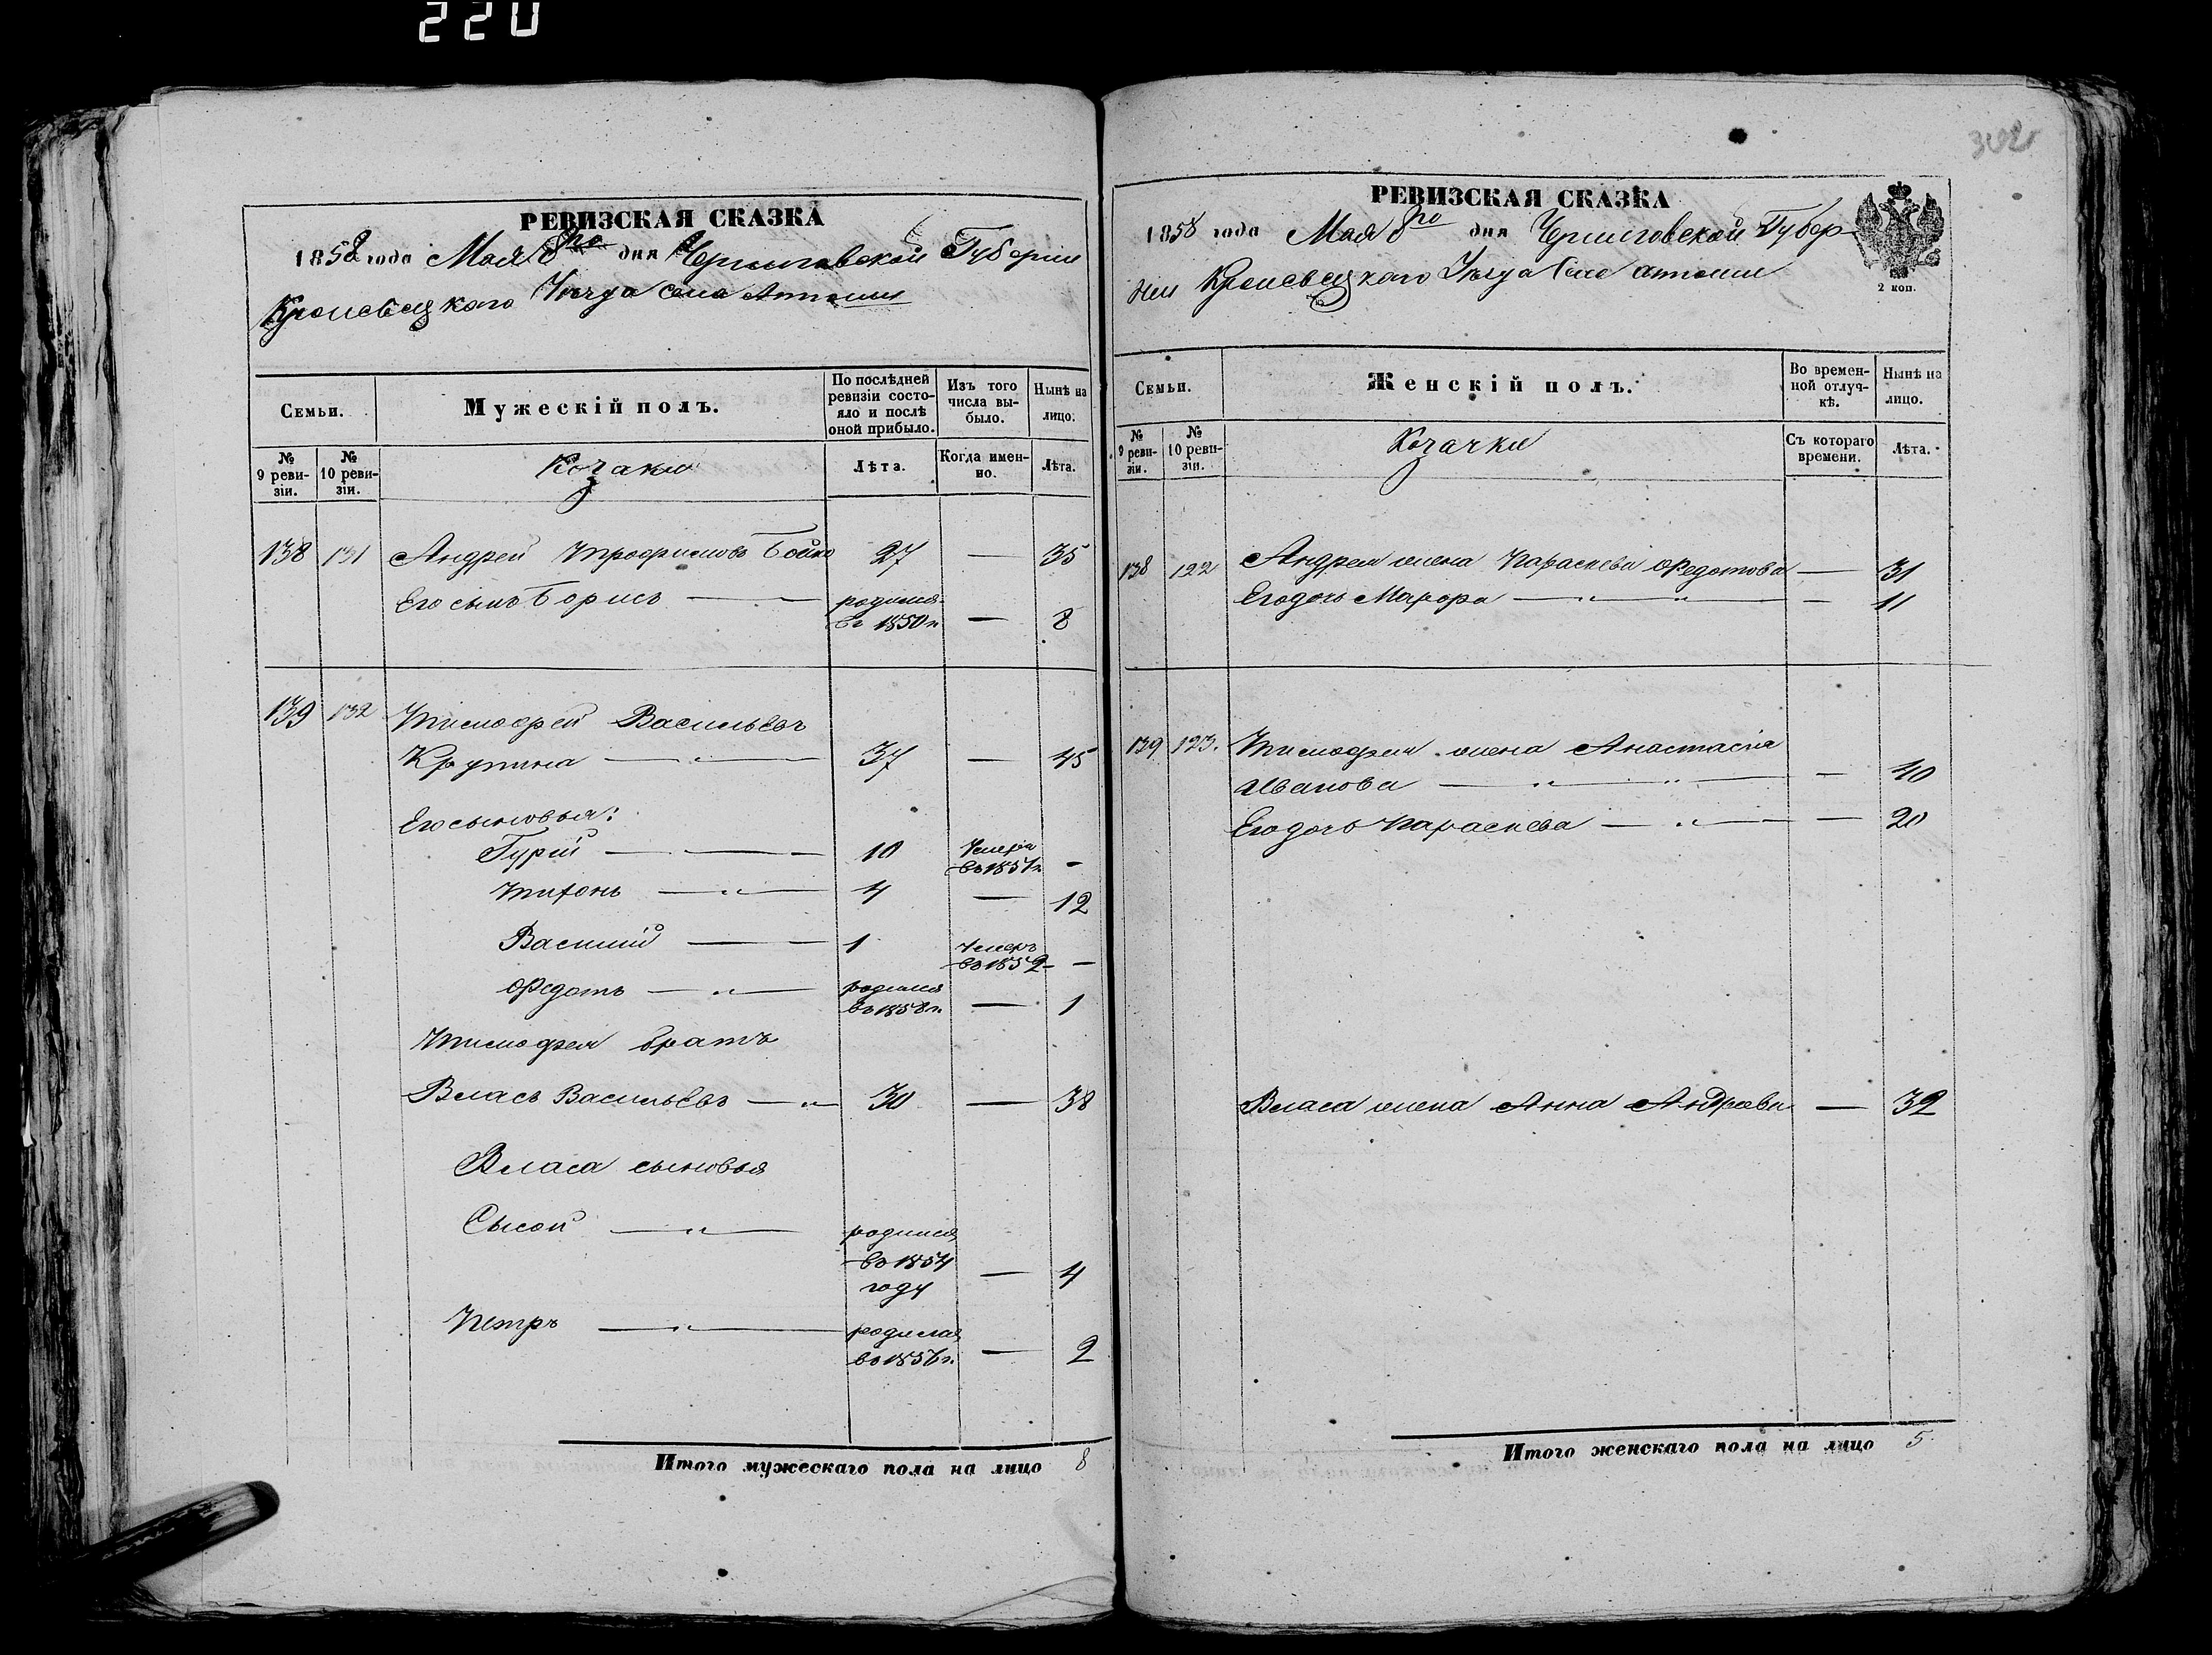 220
302
РЕВИЗСКАЯ СКАЗКА
1858 года Мая 8го дня Черниговской Губерніи
Кролевецкого Уезда Села
Семьи.
Мужескій полъ.
По послѣдней ревизіи состояло и послѣ оной прибыло.
Изъ того числа выбыло.
Нынѣ на лицо.
№ 9 ревизіи.
№ 10 ревизіи.
Козаки
Лѣта.
Когда именно.
Лѣта.
138 131 Андрей Трофимовъ Бойко 27 — 35
Его сынъ Борисъ — родился въ 1850 г. — 8
139 132 Тимофей Васильевъ
Крупина — „ — 37 — 45
Его сыновья:
Гурій — 10 Умеръ в 1857 г. —
Тихонъ — „ — 4 — 12
Василій — 1 Умеръ въ 1852 —
Федотъ — „ — родился въ 1858 г. — 1
Тимофея братъ
Власъ Васильевъ — „ 30 — 38
Власа сыновья
Сысой — „ — родился
въ 1854
году — 4
Петръ — „ — родился
въ 1856 г. — 2
Итого мужескаго пола на лицо 8
РЕВИЗСКАЯ СКАЗКА
1858 года Мая 8го дня Черниговской Губер-
ніи Кролевецкого Уезда Села
2 коп.
Семьи.
Женскій полъ.
Во временной отлучкѣ.
Нынѣ на лицо.
№ 9 ревизіи.
№ 10 ревизіи.
Козачки
Съ котораго времени.
Лѣта.
138 122 Андрея жена Параскева Федотова — 31
Его дочь Мавра — „ — „ — — 11
139 123. Тимофея жена Анастасія
Иванова — „ — „ — — 40
Его дочь Параскева — „ — — 20
Власа жена Анна Андреева — 32
Итого женскаго пола на лицо 5